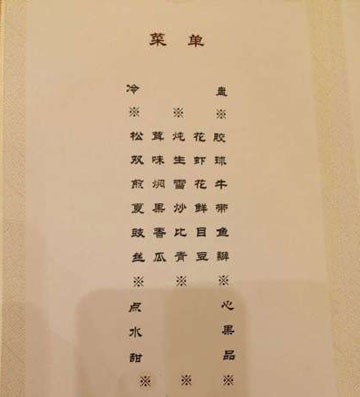 菜 单
冷 盘
※ ※ ※
松茸炖花胶
双味生虾球
煎焖雪花牛
夏果炒鲜带
豉香比目鱼
丝瓜青豆瓣
※ ※ ※
点 心
水 果
甜 品
※ ※ ※